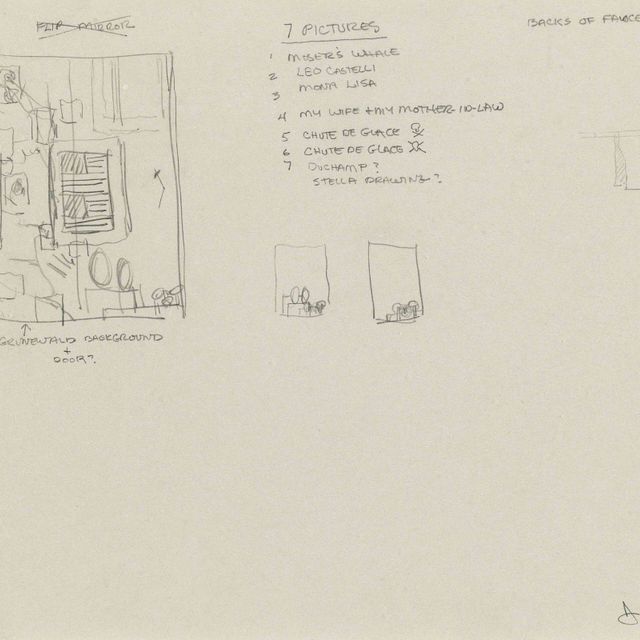 FLIP MIRROR
GRUNEWALD BACKGROUND
+
DOOR?
7 PICTURES
1 MOSER'S WHALE
2 LEO CASTELLI
3 MONA LISA
4 MY WIFE + MY MOTHER-IN-LAW
5 CHUTE DE GLACE
6 CHUTE DE GLACE
7 DUCHAMP?
STELLA DRAWING?
BACKS OF